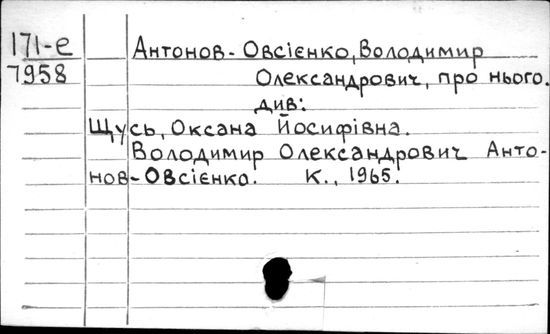 171-е Антонов-Овсієнко, Володимир
7958 Олександрович, про нього.
див:
Щусь, Оксана Йосифівна.
Володимир Олександрович Анто-
нов-Овсієнко. К., 1965.